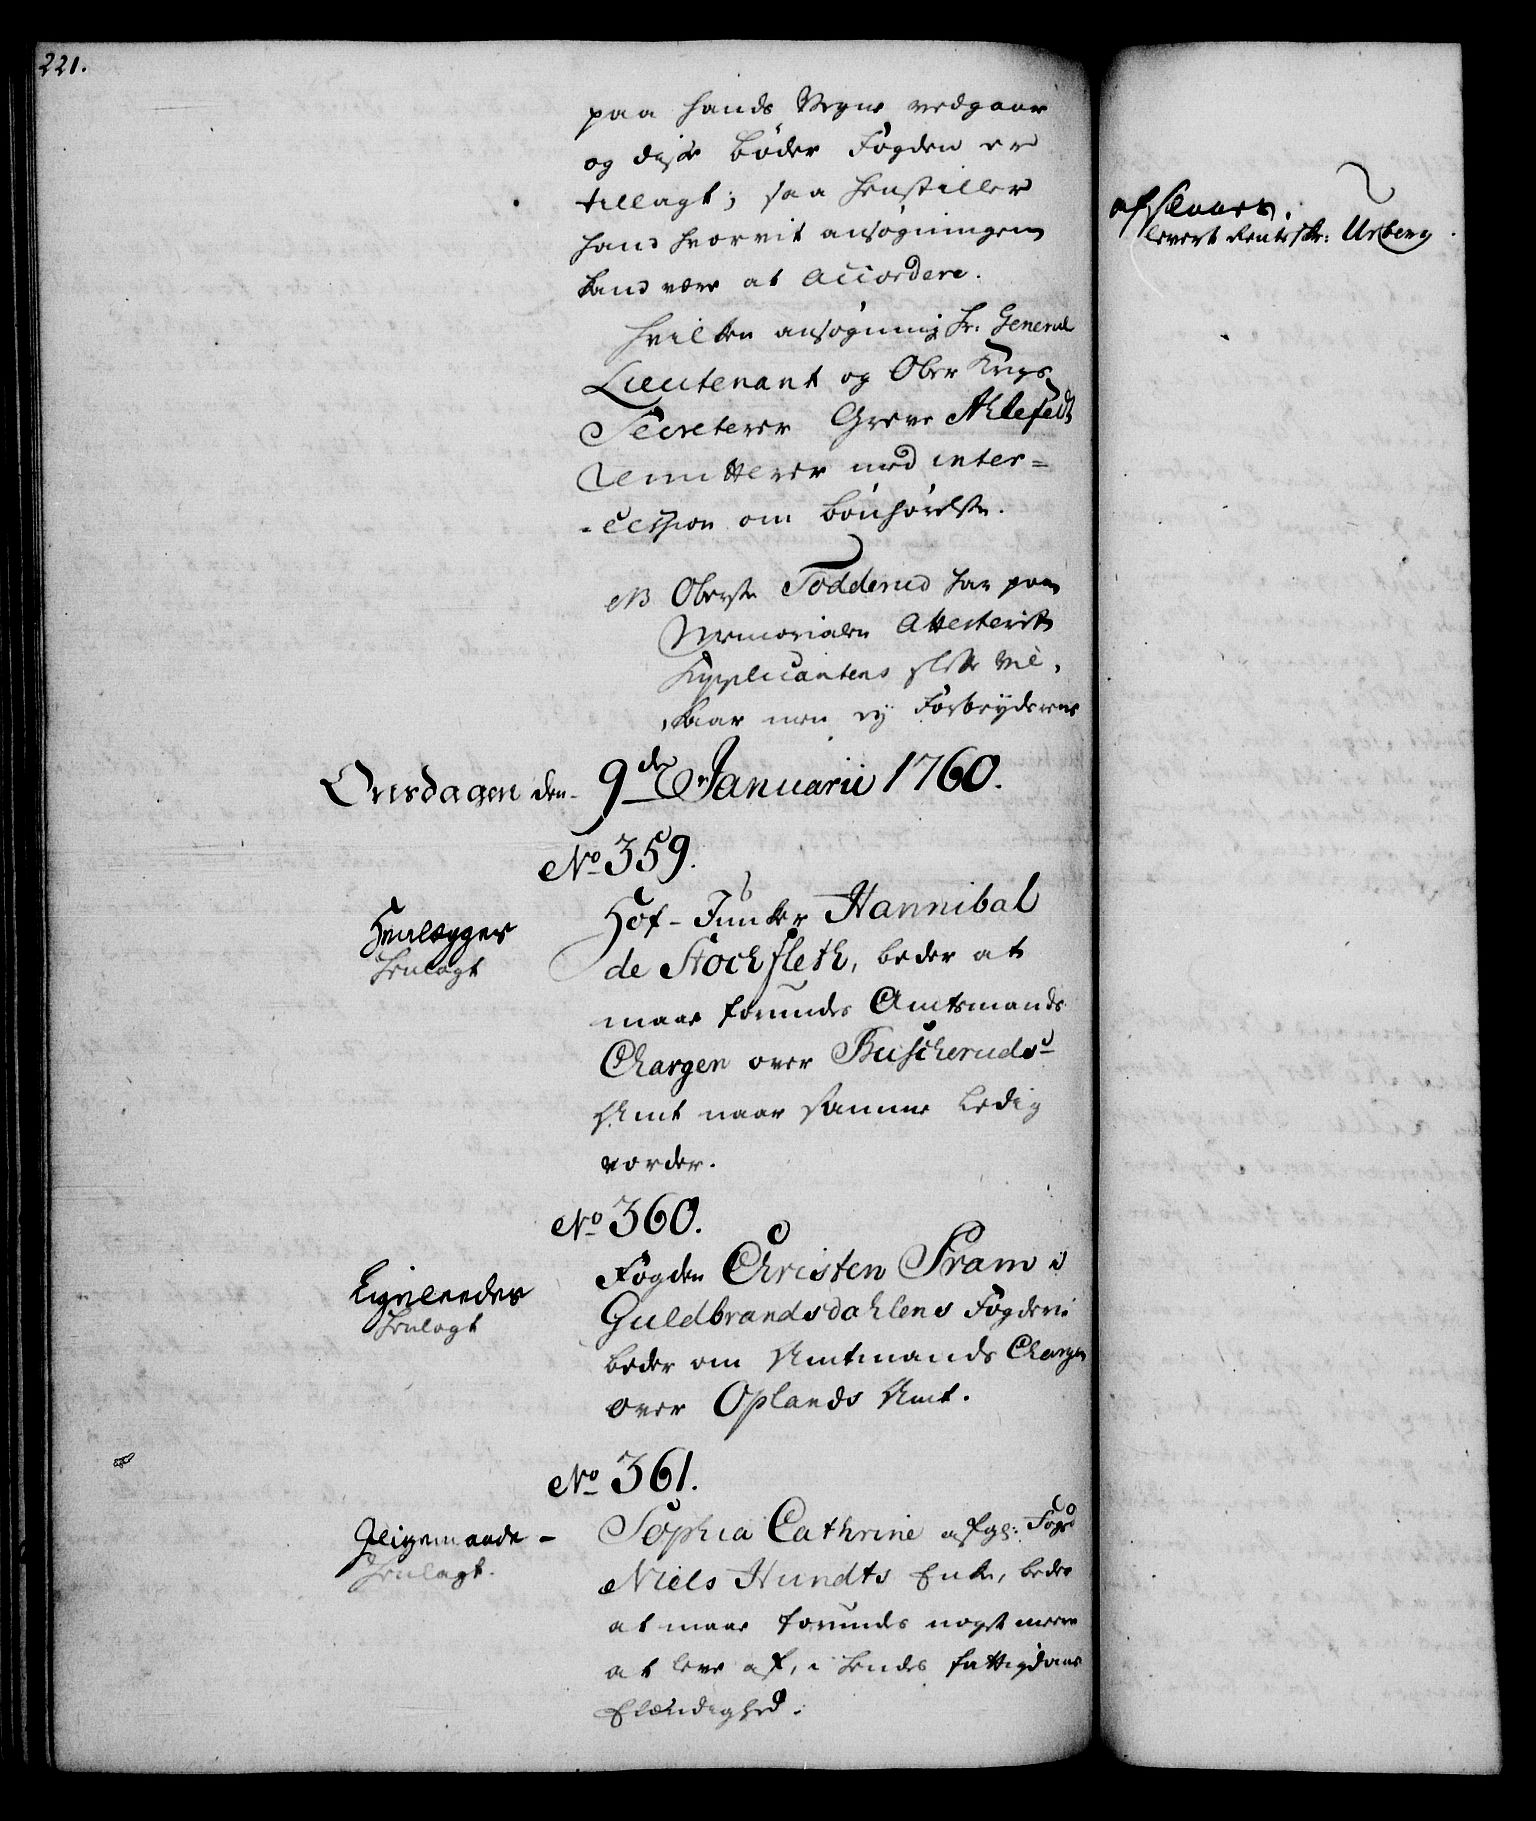 221.
paa hands Vegne vedgaar
og disse bøder Fogden er
tillagt; saa henstiller
hand hvorvit ansøgningen
kand være at accordere.
hvilken ansøgning Hr: General
Lieutenant og Ober Krigs
Secreterer Greve Ahlefeldt
Remitterer med inter=
-cession om bønhørelse.
NB Oberste Todderud har paa
Memorialen Attesterit
Supplicantens slette vil,
,kaar men ej Forbryderens
afslaaes.
levert Renteskr: Urberg.
Onsdagen den 9de Januarii 1760.
No 359.
Henlægges
Henlagt
Hof-Junker Hannibal
de Stochfleth, beder at
maae forundes Amtmands
Chargen over Buscheruds-
Amt naar samme ledig
vorder.
No 360.
Ligeleedes
Henlagt
Fogden Christen Pram i
Guldbrandsdahlens Fogderi
beder om Amtmands Chargen
over Oplands Amt.
No 361.
Jligemaade -
Henlagt.
Sophia Cathrine afgl: Foged
Niels Hundts Enke, beder
at maae forundes nogt meere
at leve af, i hendes fattigdoms
Elændighed.